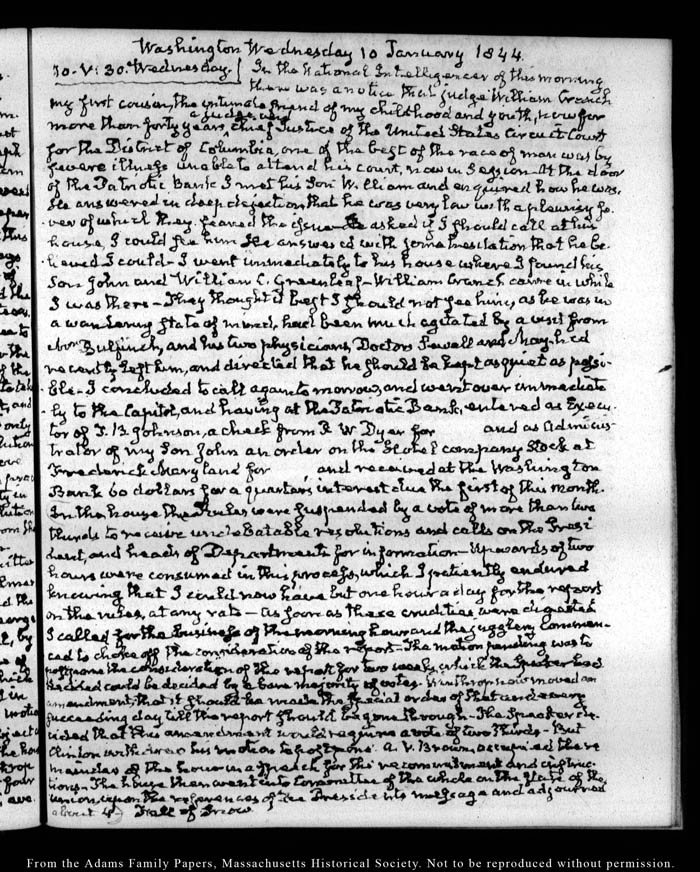 Washington Wednesday 10 January 1844.
10. V: 30. Wednesday. In the National Intelligencer of this morning
there was a notice that judge William Cranch
my first cousin, the intimate friend of my childhood and youth, now for
more than forty years, a judge and chief Justice of the United States Circuit Court
for the District of Columbia, one of the best of the race of man was by
severe illness unable to attend his court, now in Session. At the door
of the Patriotic Bank I met his Son William and enquired how he was.
He answered in deep dejection that he was very low with a pleurisy fe-
ver of which they feared the issue. He asked if I should call at his
house, I could see him. He answered with some hesitation that he be-
lieved I could. I went immediately to his house where I found his
Son John and William C. Greenleaf. William Cranch came in while
I was there. They thought it best I should not see him, as he was in
a wandering state of mind, had been much agitated by a visit from
Bulfinch, and his two physicians, Doctors Sewall and May had
recently left him, and directed that he should be kept as quiet as possi-
ble. I concluded to call again to morrow, and went over immediate-
ly to the Capitol, and having at the Patriotic Bank, entered as Execu-
tor of T. B. Johnson, a check from R W Dyer for and as Adminis-
trator of my Son John an order on the Hotel company Stock at
Frederick Maryland for , and received at the Washington
Bank 60 dollars for a quarter's interest due the first of this month.
In the house the Rules were suspended by a vote of more than two
thirds to receive undebatable resolutions and calls on the Presi-
dent, and heads of Departments for information. Upwards of two
hours were consumed in this process, which I patiently endured
knowing that I could now have but one hour a day for the report
on the rules, at any rate - as soon as these crudities were digested
I called for the business of the morning hour and the juggling commen-
ced to choke off the consideration of the report. The motion pending was to
postpone the consideration of the report for two weeks, which the Speaker had
decided could be decided by a bare majority of votes. Winthrop now moved an
amendment, that it should be made the special order of that and every
succeeding day till the report should be gone through. The Speaker de-
cided that this amendment would require a vote of two thirds. But
Clinton withdrew his motion to postpone. A. V. Brown occupied the re-
mainder of the hour in a speech for the recommitment and instruc-
tions. The house then went into Committee of the whole on the state of the
union, upon the references of the President's message and adjourned
about 4. Fall of Snow.
From the Adams Family Papers, Massachusetts Historical Society. Not to be reproduced without permission.